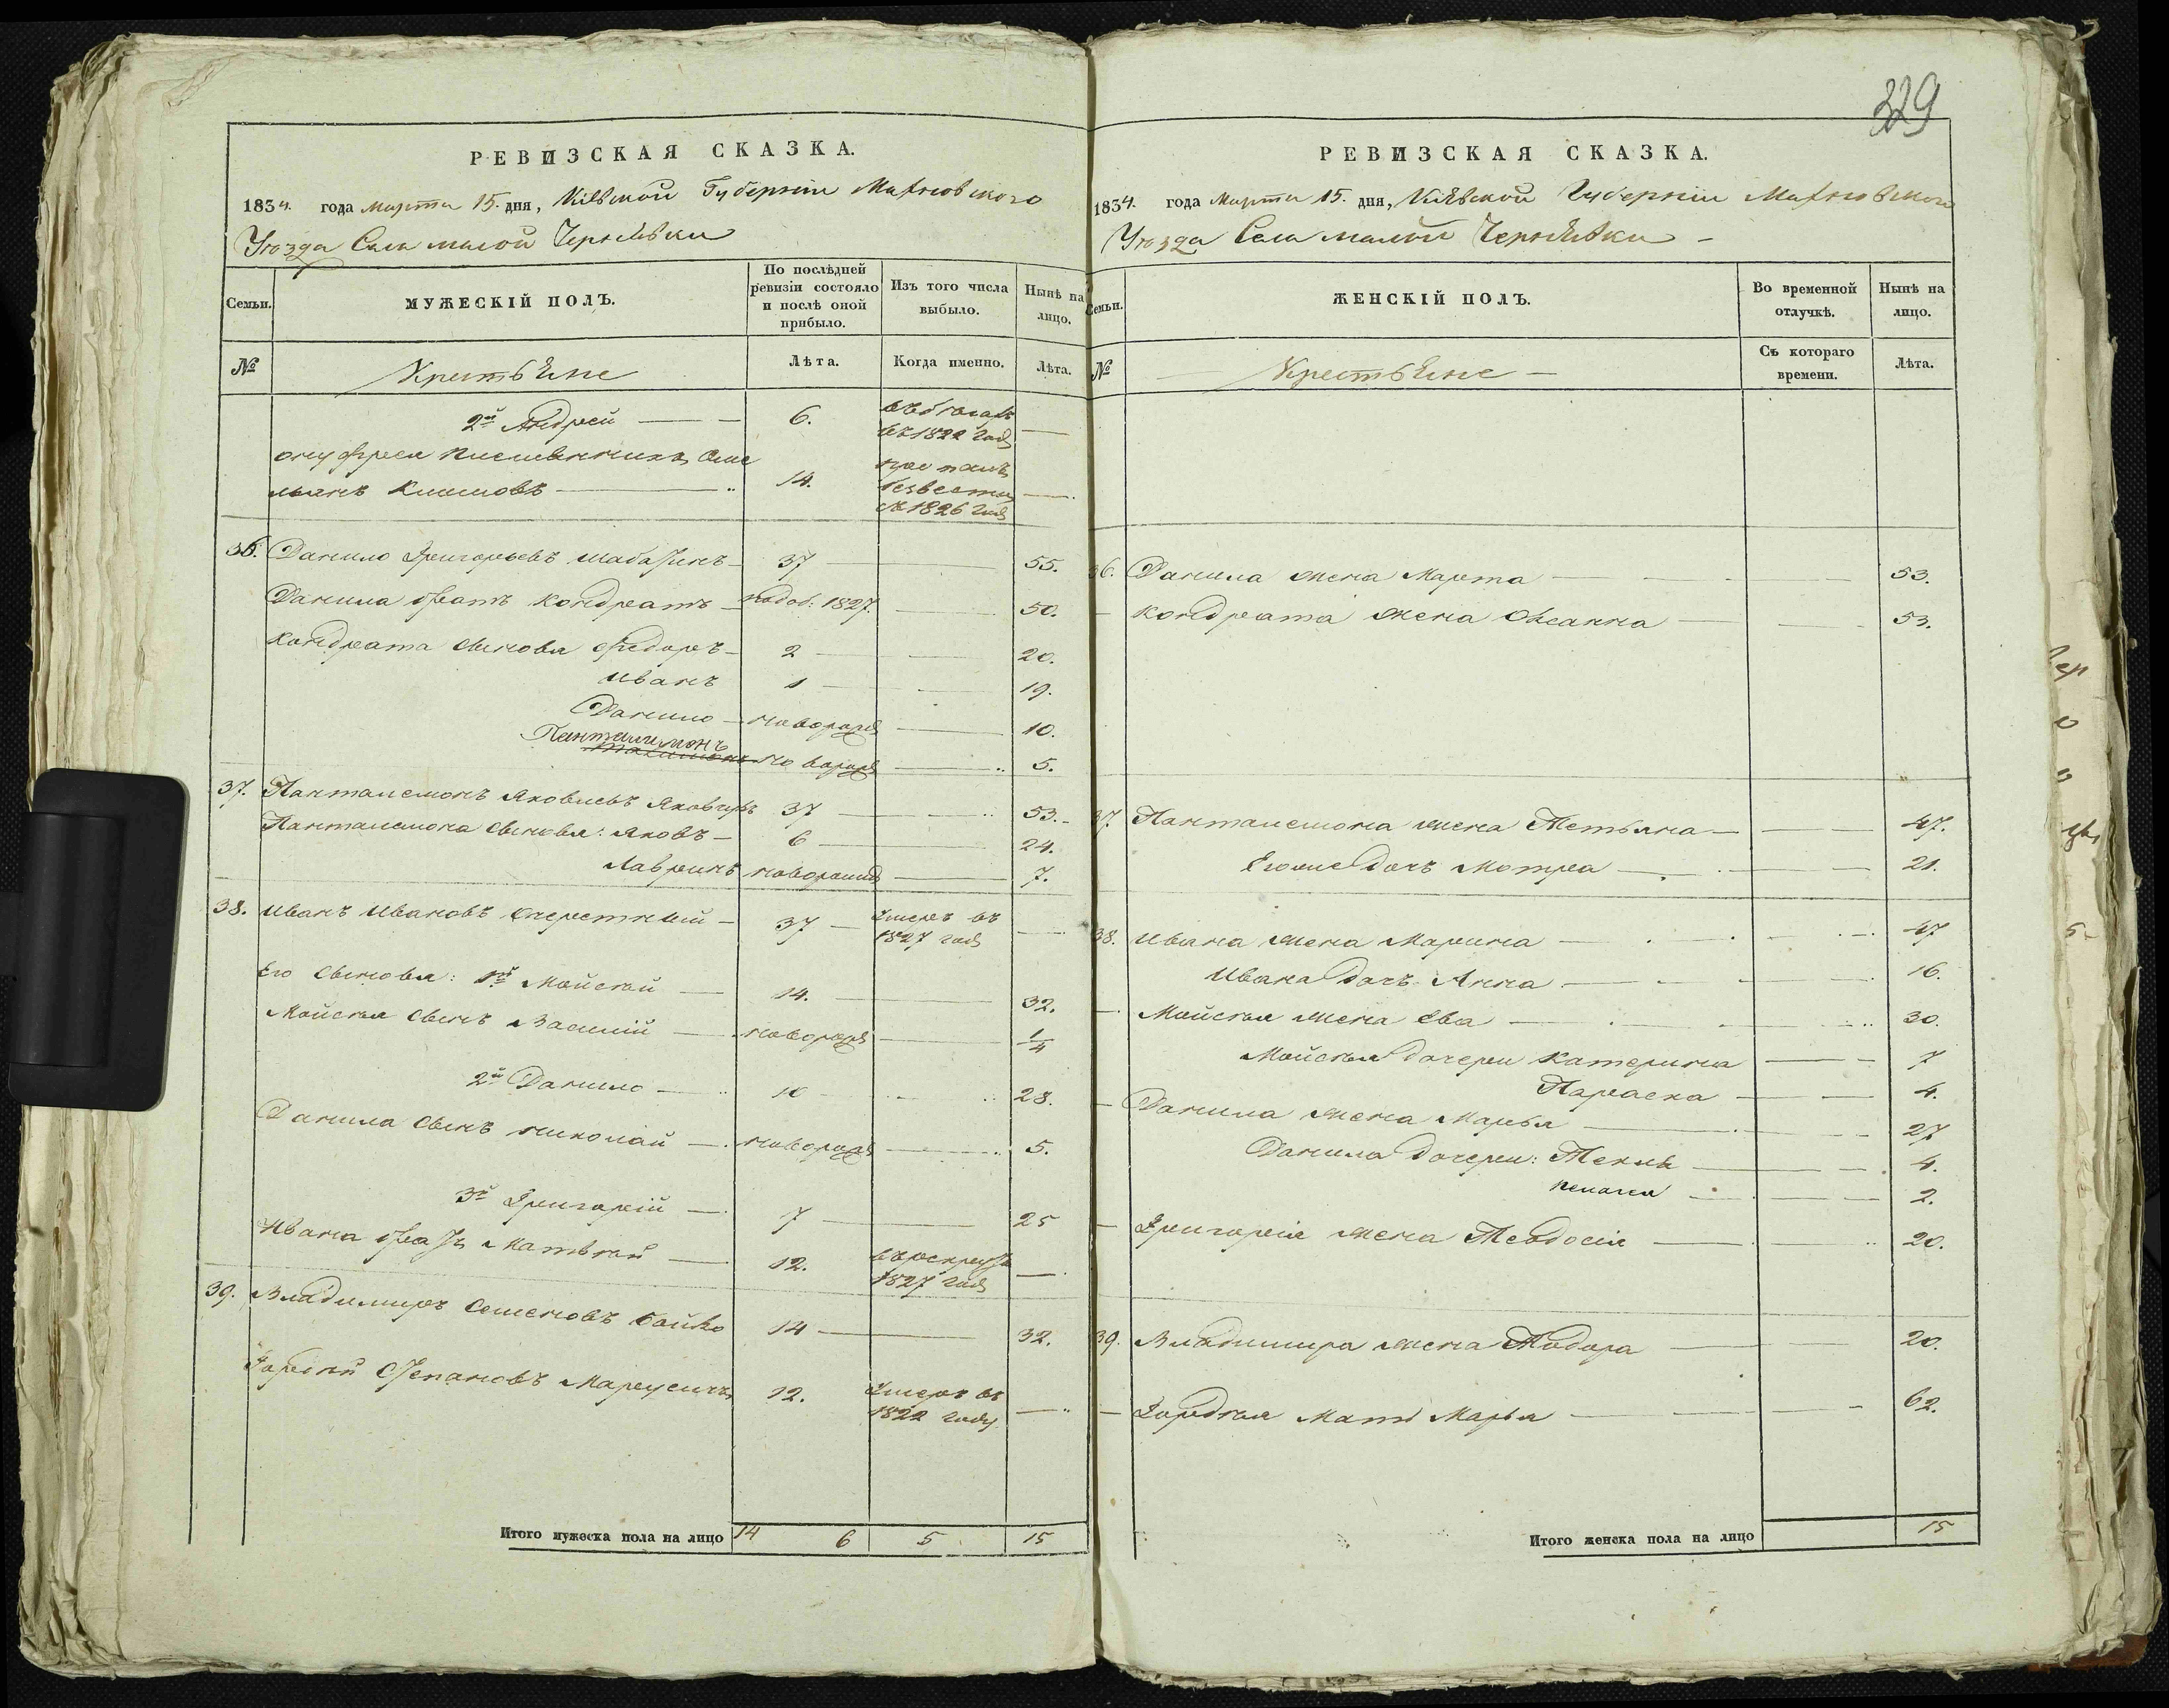 329
РЕВИЗСКАЯ СКАЗКА.
1834. года Марта 15. дня, Кіевской Губерніи Махновского
Уѣзда Села малой Чернявки
Семьи. МУЖЕСКІЙ ПОЛЪ. По послѣдней ревизіи состояло и послѣ оной прибыло. Изъ того числа выбыло. Нынѣ на лицо.
№ Крестьяне Лѣта. Когда именно. Лѣта.
2й Андрей 6. въ 1822 году
14. безвестно 1826 году
36. Данило Григорьевъ 37 55.
Данила братъ Кондратъ 1827. 50.
Кондрата сыновья Федоръ 2 20.
Иванъ 1 19.
Данило новорожд 10.
Пантилимонъ новорожд 5.
37. Пантелемонъ Яковлевъ 37 53.
Пантелемона сыновья: Яковъ 6 24.
Лавринъ новорожд 7.
38. Иванъ Ивановъ Очеретный 37 умеръ въ
1827 году
Его сыновья: 1й Мойсей 14. 32.
Мойсея сынъ Василій новорожд 1/4
2й Данило 10 28.
Данила сынъ Николай новорожд 5.
3й Григорій 7 25
Ивана братъ Матвей 12. в рекруты
1827 году
39. Владимиръ Семеновъ Бойко 14 32.
Гордей Степановъ 12. умеръ въ
1822 году
Итого мужеска пола на лицо 14 6 5 15
РЕВИЗСКАЯ СКАЗКА.
1834. года Марта 15. дня, Кіевской Губерніи Махновского
Уѣзда Села малой Чернявки
Семьи. ЖЕНСКІЙ ПОЛЪ. Во временной отлучкѣ. Нынѣ на лицо.
№ Крестьяне Съ котораго времени. Лѣта.
36. Данила жена Марта 53.
Кондрата жена 53.
37 Пантелемона жена Тетьяна 47.
Его же дочь Мотря 21.
38. Ивана жена Марина 47
Ивана дочь Анна 16.
Мойсея жена Ева 30.
Мойсея дочери Катерина 7
Параска 4.
Данила жена Марья 27
Данила дочери: Текля 4.
Пелагея 2.
Григорія жена Теодосія 20.
39. Владимира жена Тодора 20.
Гордея мать Марья 62.
Итого женска пола на лицо 15